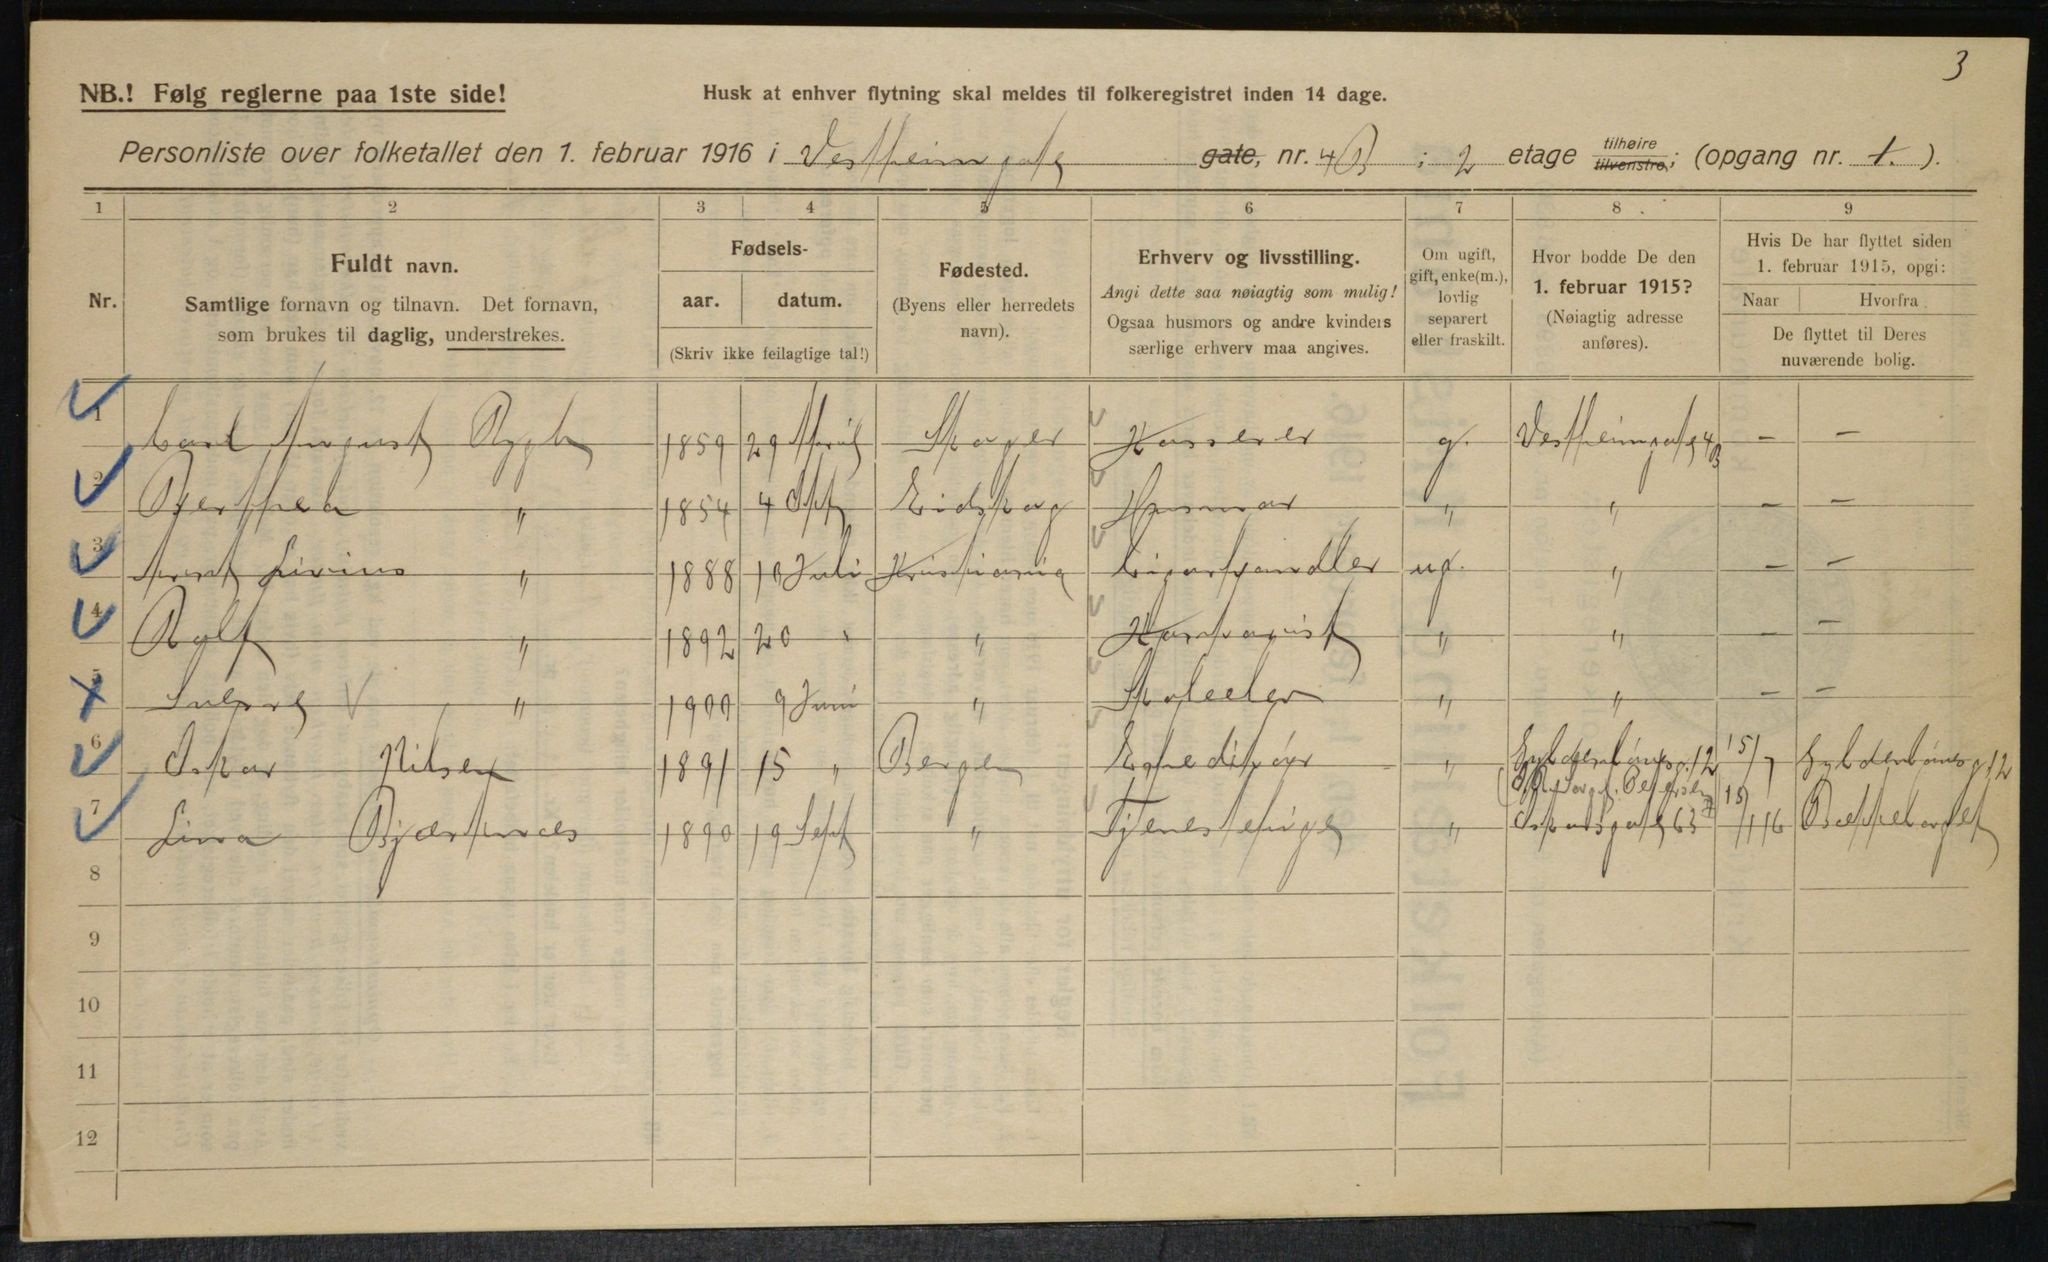 3
NB.! Følg reglerne paa 1ste side! Husk at enhver flytning skal meldes til folkeregistret inden 14 dage.
Personliste over folketallet den 1. februar 1916 i Vestheimgate gate, nr. 4B ; 2 etage tilhøire tilvenstre; (opgang nr. 1. ).
1 2 3 4 5 6 7 8 9
Nr.
Fuldt navn.
Samtlige fornavn og tilnavn. Det fornavn,
som brukes til daglig, understrekes.
Fødsels-
aar. datum.
(Skriv ikke feilagtige tal!)
Fødested.
(Byens eller herredets
navn).
Erhverv og livsstilling.
Angi dette saa nøiagtig som mulig!
Ogsaa husmors og andre kvinders
særlige erhverv maa angives.
Om ugift,
gift, enke(m.),
lovlig
separert
eller fraskilt.
Hvor bodde De den
1. februar 1915?
(Nøiagtig adresse
anføres).
Hvis De har flyttet siden
1. februar 1915, opgi:
Naar Hvorfra
De flyttet til Deres
nuværende bolig.
1 Carl August Rygh 1859 29 April Skoger Kasserer g. Vestheimgate 4B — —
2 Berthea " 1854 4 Eidskog Husmor " " — —
3 Arent Livius " 1888 10 Juli Kristiania Cigarhandler ug. " — —
4 Rolf " 1892 20 " " " " — —
5 " 1900 9 Juni " " " — —
6 Oskar Nilsen 1891 15 " Bergen Expeditør " Gyldenløvesg. 12 15/7 Gyldenløvesg 12
7 Lina 1890 19 Sept " " Oskarsgate 63
8
9
10
11
12